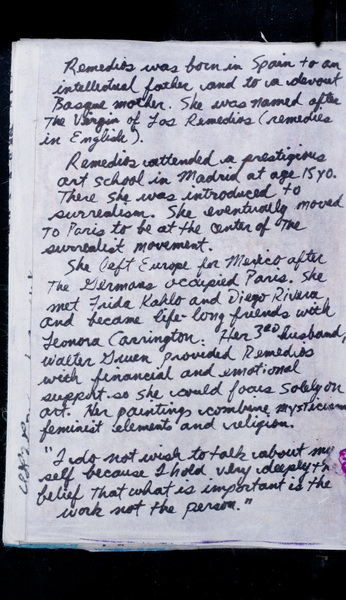 Remedios was born in Spain to an
intellectual father and to a devout
Basque mother. She was named after
The Virgin of Los Remedios (remedies
in English).
Remedios attended a prestigious
art school in Madrid at age 15 yo.
There she was introduced to
surrealism. She eventually moved
To Paris to be at the center of The
surrealist movement.
She left Europe for Mexico after
The Germans occupied Paris. She
met Frida Kahlo and Diego Rivera
and became life-long friends with
Leonora Carrington. Her 3rd husband,
Walter Gruen provided Remedios
with financial and emotional
support so she could focus solely on
art. Her paintings combine mysticism
feminist elements and religion.
"I do not wish to talk about my
self because I hold very deeply the
belief That what is important is the
work not the person."